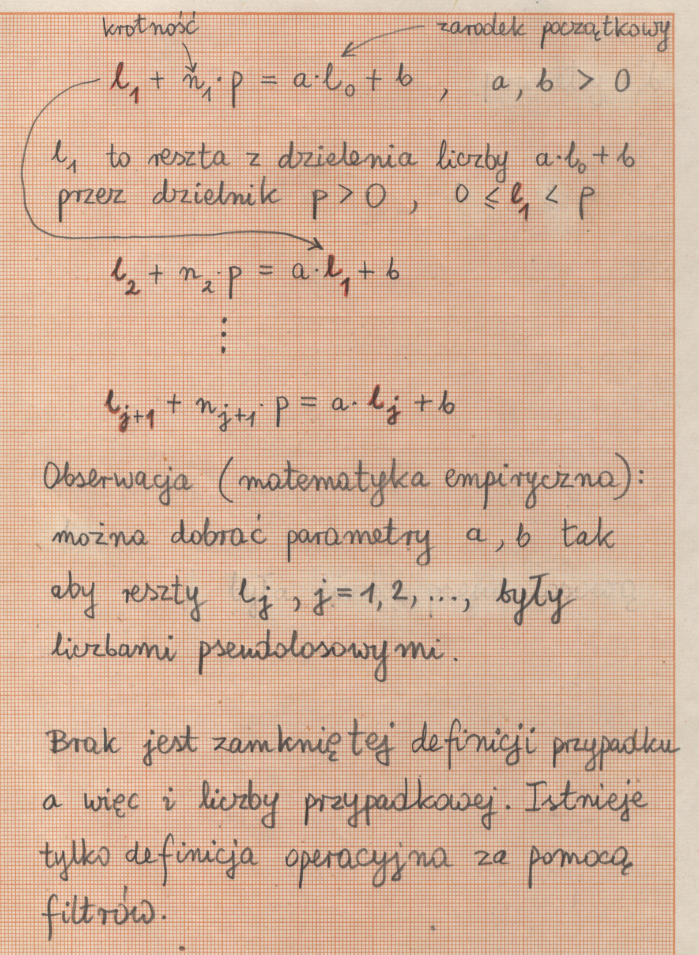 krotność zarodek początkowy
l₁ + n₁· p = a·l₀ + b , a, b > 0
l₁ to reszta z dzielenia liczby a·l₀ + b
przez dzielnik p > 0 , 0 ≤ l₁ < p
l₂ + n₂·p = a·l₁ + b
⋮
lⱼ₊₁ + nⱼ₊₁· p = a· lⱼ + b
Obserwacja (matematyka empiryczna):
można dobrać parametry a, b tak
aby reszty lⱼ , j = 1, 2, ..., były
liczbami pseudolosowymi.
Brak jest zamkniętej definicji przypadku
a więc i liczby przypadkowej. Istnieje
tylko definicja operacyjna za pomocą
filtrów.